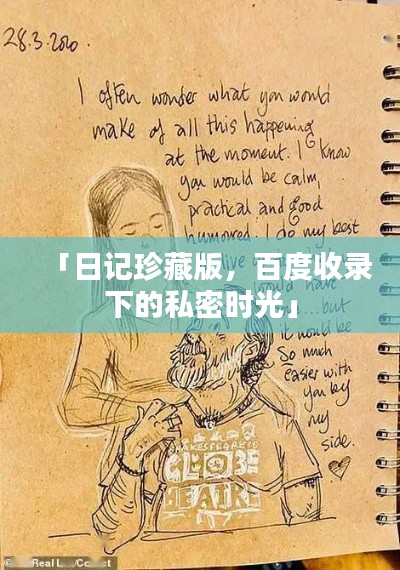 28.3.2020
I often wonder what you would
make of all this happening
at the moment. I know
you would be calm,
practical and good
humored. I do my best
「日记珍藏版，百度收录
下的私密时光」
it would be
So much
easier with
you by
my
side.
GLOBE
Real